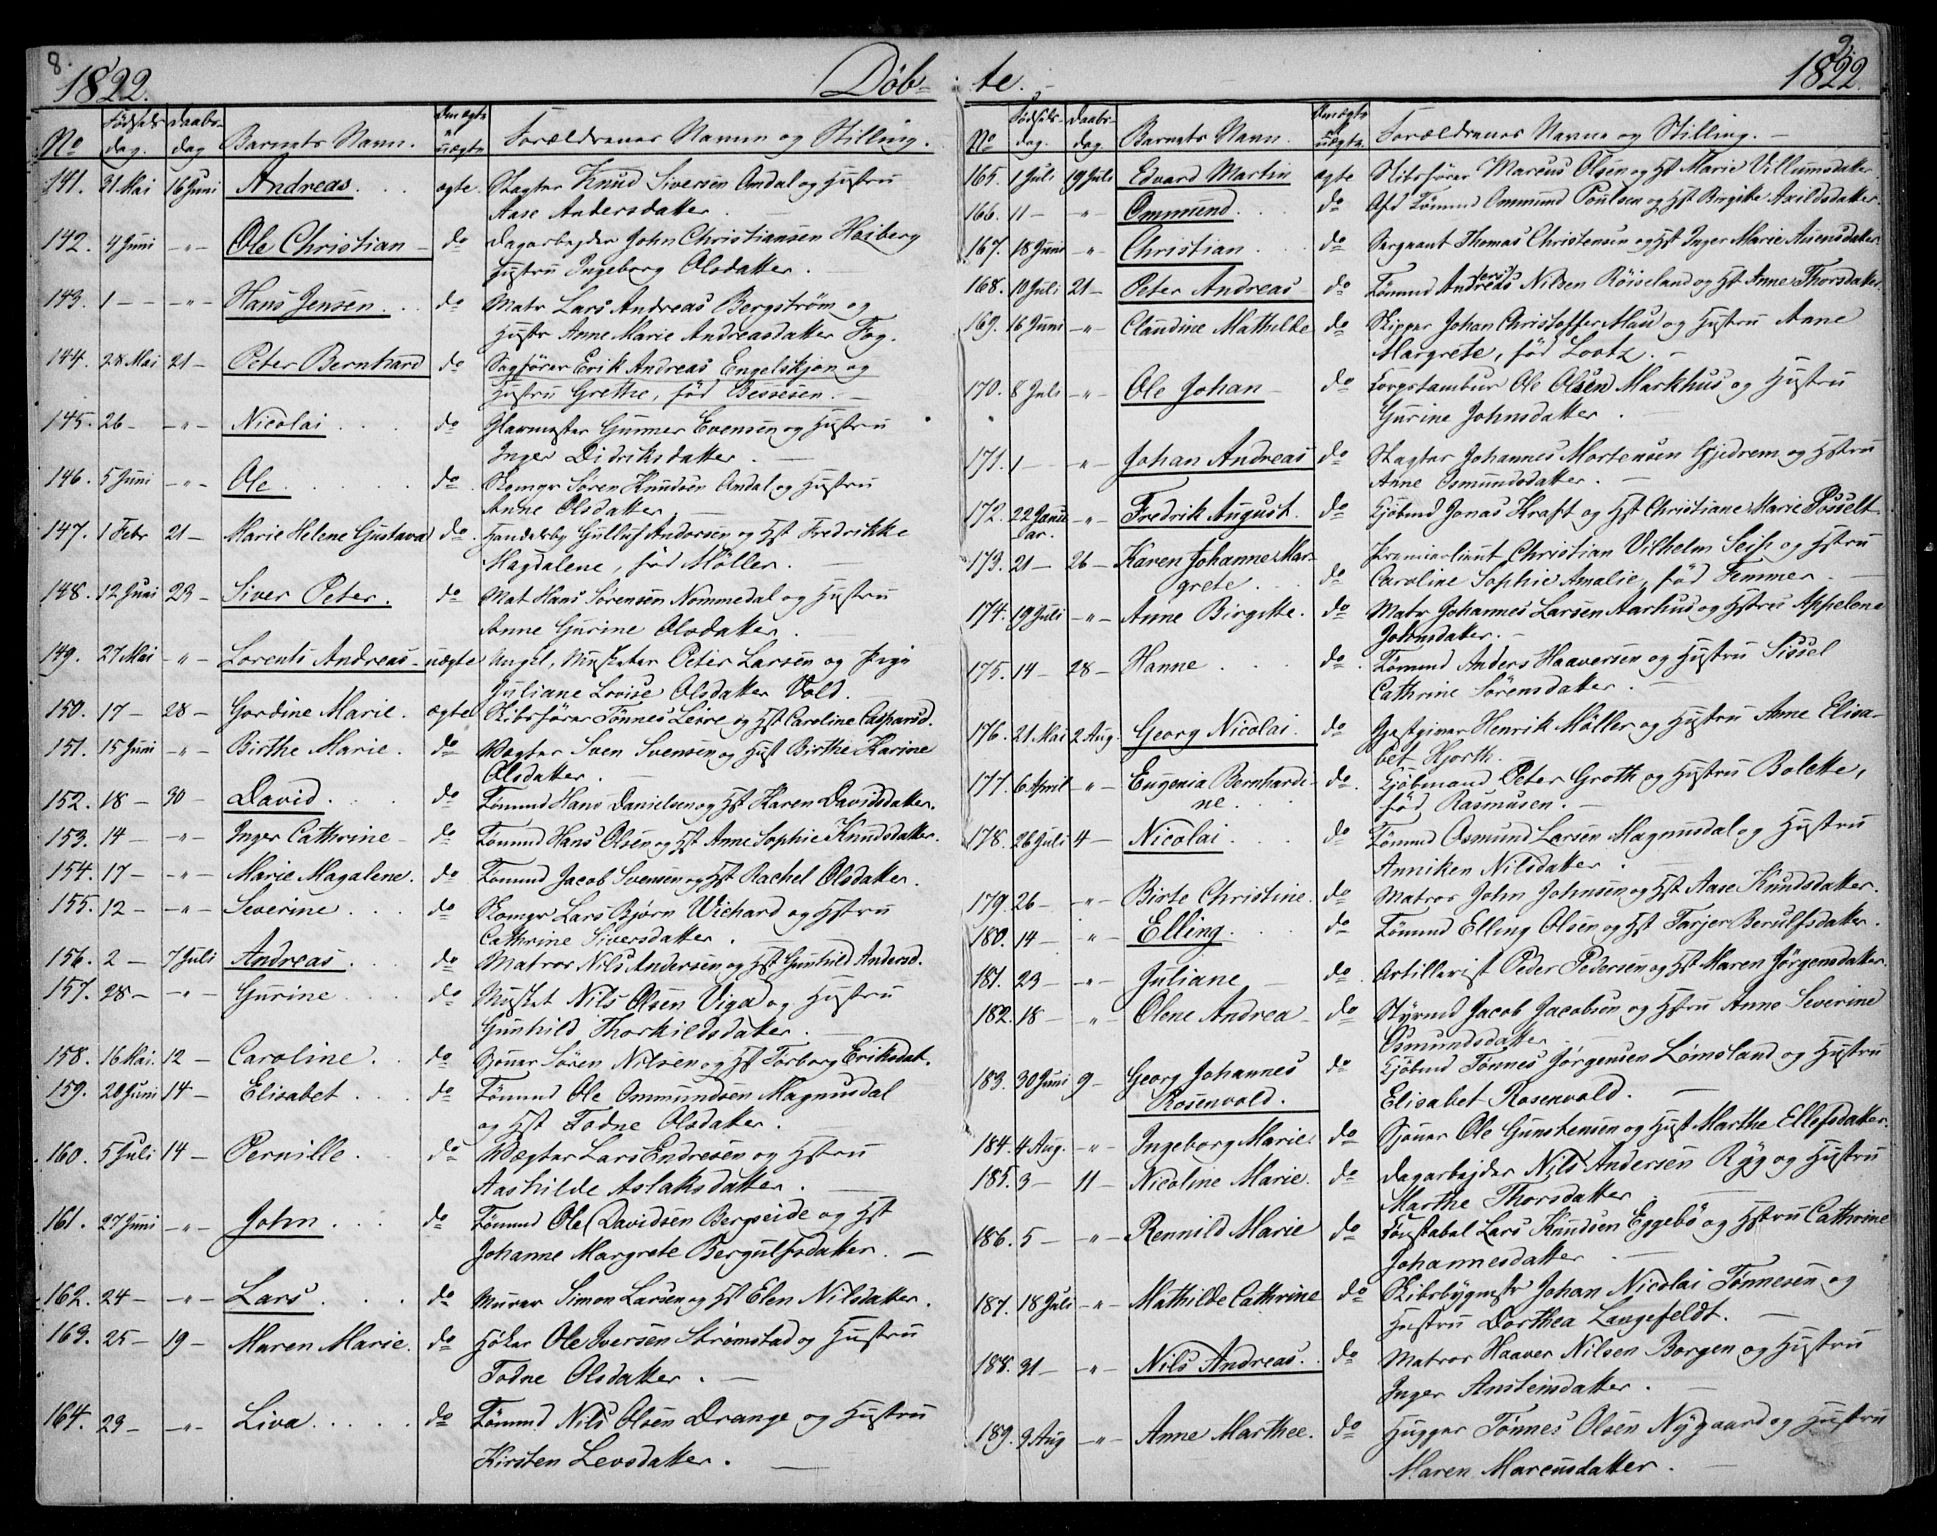 8.
1822. Döb-
No Födsels dag. Daabs- dag Barnets Navn. Om ægte el. uægte Forældrenes Navne og Stilling.
141. 31 Mai 16 Juni Andreas. ægte. Knud Siversen Andal og Hustru
Aase Andersdatter.
142. 4 Juni -"- Ole Christian - do Dagarbejder John Christiansen Høiberg
Hustru Ingeborg Olsdatter.
143. 1 - -"- Hans Jensen. do Matr Lars Andreas Bergström og
Hustr Anne Marie Andreasdatter Fog.
144. 28 Mai 21 - Peter Bernhard do Sagförer Erik Andreas Engelskjøn og
Hustru Grethe, fød Bessesen.
145. 26 - -"- Nicolai do Glarmester Gunner Evensen og Hustru
Inger Didriksdatter.
146. 5 Juni -"- Ole do Skomgr Sören Knudsen Andal og Hustru
Anne Olsdatter
147. 1 Febr 21 - Marie Helene Gustava do Handelsb Gulluf Andersen og Hst Fredrikke
Magdalene, fød Möller.
148. 12 Juni 23 - Siver Peter. do Mat Hans Sörensen Nommedal og Hustru
Anne Gurine Olsdatter.
149. 27 Mai -"- Lorents Andreas - uægte Ungk, Musketer Peter Larsen og Pige
Juliane Lovise Olsdatter Vold.
150. 17 - 28 - Gordine Marie. ægte Skibsfører Tönnes Leire og Hst Caroline Caspersd.
151. 15 Juni -"- Birthe Marie. do Vægter Sven Svensen og Hust Birthe Karine
Olsdatter.
152. 18 - 30 - David. do Tömmd Hans Danielsen og Hst Karen Davidsdatter.
153. 14 - -"- Inger Cathrine - do Tömmd Hans Olsen og Hst Anne Sophie Knudsdatter.
154. 17 - -"- Marie Magalene. do Tömmd Jacob Svensen og Hst Rachel Olsdatter.
155. 12 - -"- Severine do Skomgr Lars Bjørn Wichard og Hstru
Cathrine Siversdatter.
156. 2 - 7 Juli Andreas do Matros Nils Andersen og Hst Gunhild Andersd.
157. 28 - -"- Gurine do Musket Nils Olsen Viga og Hustru
Gunhild Thorkildsdatter.
158. 16 Mai. 12 - Caroline. do Sjouer Sören Nilsen og Hst Torborg Eriksdat.
159. 20 Juni 14 - Elisabet do Tömmd Ole Ommundsen Magnusdal
og Hst Todne Olsdatter.
160. 5 Juli 14 - Pernille. do Vægter Lars Endresen og Hstru
Aashilde Aslaksdatter.
161. 27 Juni -"- John do Tömmd Ole Davidsen Bergseide og Hst
Johanne Margrete Bergulfsdatter. -
162. 24 - -"- Lars do Murer Simon Larsen og Hst Elen Nilsdatter.
163. 25 - 19 - Maren Marie. do Høker Ole Iversen Strømstad og Hustru
Todne Olsdatter. -
164. 23 - -"- Liva do Tömmd Nils Olsen Drange og Hustru
Kirsten Levsdatter.
9.
te. 1822.
No Födsels- dag. Daabs- dag. Barnets Navn. Om ægte el. uægte. Forældrenes Navne og Stilling. -
165. 1 Juli 19 Juli Edvard Martin ægte Skibsfører Marcus Olsen og Hst Marie Villumsdatter.
166. 11 - -"- Ommund. do Afd Tømmd Ommund Poulsen og Hst Birgitte Axildsdatter.
167. 18 Juni -"- Christian. do Sergeant Thomas Christensen og Hst Inger Marie
168. 10 Juli 21 - Peter Andreas do Tömmd Nilsen Röiseland og Hst Anne Thorsdatter.
169. 16 Juni -"- Claudine Mathilde do Skipper Johan Christoffer Mau og Hustru Anne
Margrete, fød Lootz. -
170. 8 Juli -"- Ole Johan do Corpstambur Ole Olsen Markhus og Hustru
Gurine Johnsdatter.
171. 1 - -"- Johan Andreas do Johannes Mortensen Gjedrem og Hstru
Anne Osmundsdatter. -
172. 22 Janu ar. -"- Fredrik August. do Kjöbmd Jonas Kraft og Hst Christiane Marie Posselt
173. 21 - 26 - Karen Johanne Mar- Premierlieut Christian Vilhelm Seip og Hstru
grete do Caroline Sophie Amalie, fød Femmer.
174. 19 Juli -"- Anne Birgitte. do Matr Johannes Larsen Aarhus og Hstru Appelone
Johnsdatter. -
175. 14 - 28 - Hanne do Tömmd Anders Haaversen og Hustru Sissel
Cathrine Sörensdatter.
176. 21 Mai 2 Aug. Georg Nicolai. do Gjestgiver Henrik Möller og Hustru Anne Elisa-
bet Hjorth.
177. 6 April -"- Eugenia Bernhardi- do. Kjöbmand Peter Groth og Hustru Bolette,
ne. fød Rasmusen. -
178. 26 Juli 4 - Nicolai do Tömmd Osmund Larsen Magnusdal og Hustru
Anniken Nilsdatter.
179. 26 - -"- Birte Christine. do Matros John Johnsen og Hst Aase Knudsdatter.
180. 14 - -"- Elling. do Tömmd Elling Olsen og Hst Tarjer Berulfsdatter.
181. 23 - -"- Juliane do. Artillerist Peder Pedersen og Hst Maren Jörgensdatter.
182. 18 - -"- Olene Andrea do Styrmd Jacob Jacobsen og Hstru Anne Severine
Osmundsdatter.
183. 30 Juni 9 - Georg Johannes do Kjöbmd Tønnes Jørgensen Lømsland og Hustru
Rosenvold. Elisabet Rosenvold.
184. 4 Aug. -"- Ingeborg Marie. do Sjouer Ole Gunstensen og Hust Marthe Ellefsdatter.
185. 3 - 11 - Nicoline Marie. do Dagarbejder Nils Andersen Ryg og Hustru
Marthe Thorsdatter
186. 5 - -"- Rennild Marie do Lars Knudsen Eggebö og Hstru Cathrine
Johannesdatter
187. 18 Juli -"- Mathilde Cathrine do Skibsbygmstr Johan Nicolai Tønnesen og
Hustru Dorthea Langefeldt.
188. 31 - -"- Nils Andreas. do Matros Haaver Nilsen Borgen og Hustru
Inger Anstensdatter.
189. 9 Aug -"- Anne Marthee. do Hugger Tønnes Olsen Nygaard og Hustru
Maren Marcusdatter.